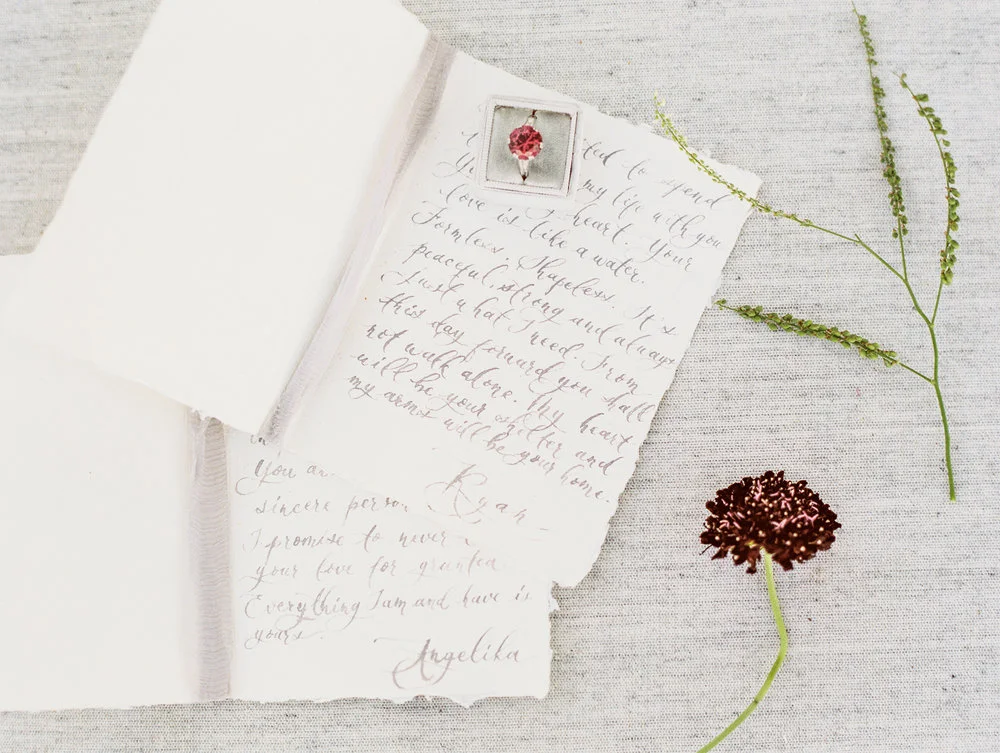 to spend
my life with you
love is heart. Your
is like a water.
Formless. Shapeless. It's
peaceful, strong and always
just what I need. From
this day forward you shall
not walk alone. My heart
will be your shelter and
my arms will be your home.
Ryan
in
You
sincere
I promise to never
your love for granted
Everything I am and have is
yours.
Angelika